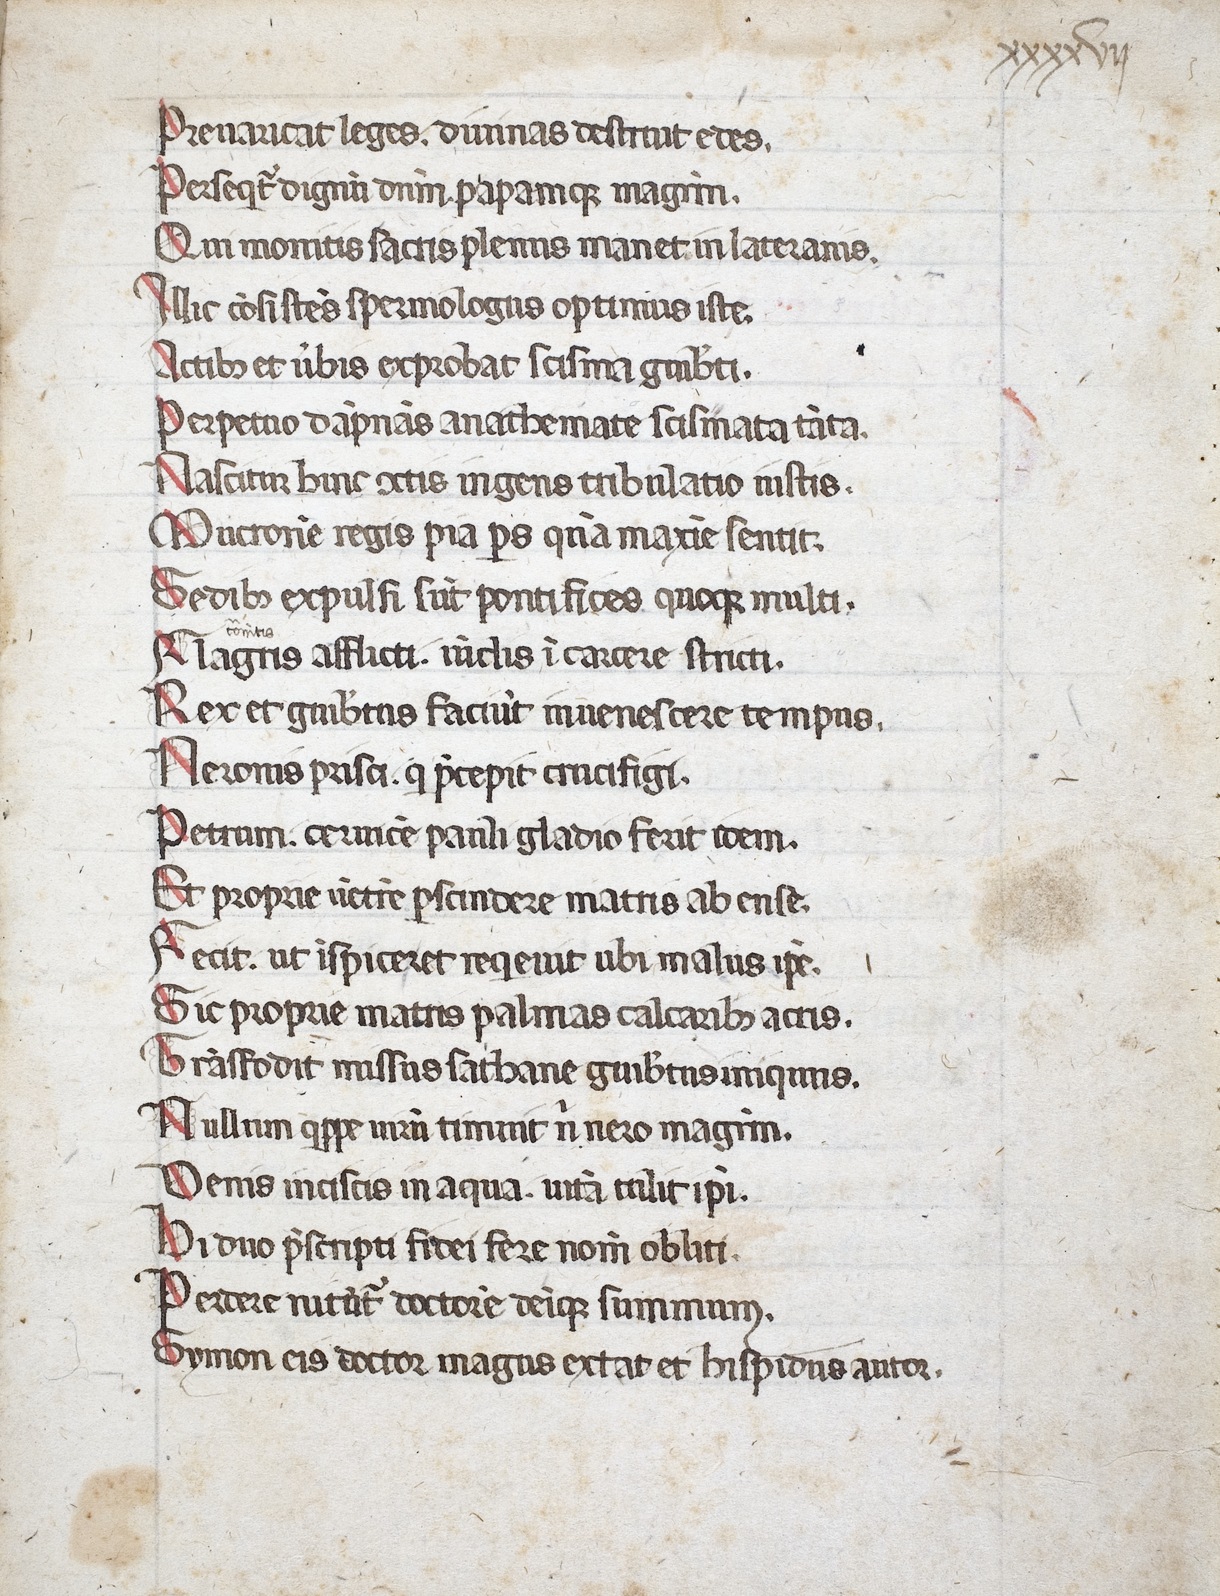 xxxxvij
Preuaricat leges. diuinas destituit edes.
Perseqt᷑ dignū dn̄m. papamqꝫ magrm̄.
Qui monitis sāctis plenus manet in lateranis.
Illic cōsistēs spermologus optimus iste.
Actibꝫ et ūbis exprobat scisma guibti.
Perpetuo dāpnās anathemate scismata tāta.
Nascitur hinc ꝯctis ingens tribulatio iustis.
Mucronē regis pia ꝑs qm̄a maxīe sentit.
Sedibꝫ expulsi sūt pontifices quoqꝫ multi.
Flagris afflicti. uīclis ī carcere stricti.
Rex et guib̄tus faciūt iuuenescere tempus.
Neronis prisci. q p̄cepit crucifigi.
Petrum. ceruicē pauli gladio ferit idem.
Et proprie uētrē ꝑscindere matris ab ense.
Fecit. ut īspiceret reqeiuit ubi malus ip̄e.
Sic proprie matris palmas calcaribꝫ actis.
Trāsfodit missus sathane guib̄tus iniquus.
Nullum qꝑpe uirū timuit n̄ nero magrm̄.
Venis incisis in aqua. uitā tulit ip̄i.
Hi duo p̄scripti fidei fere nom̄ obliti.
Perdere nitūt᷑ doctorē deīqꝫ summum.
Symon eis doctor magus extat et hispidus autor.